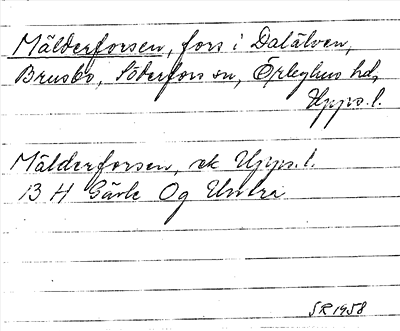 Mälderforsen, fors i Dalälven,
Brusbo, Söderfors sn, Örbyhus hd,
Upps. l.
Mälderforsen, ek Upps. l.
13 H Gävle Og Undra
SR 1958